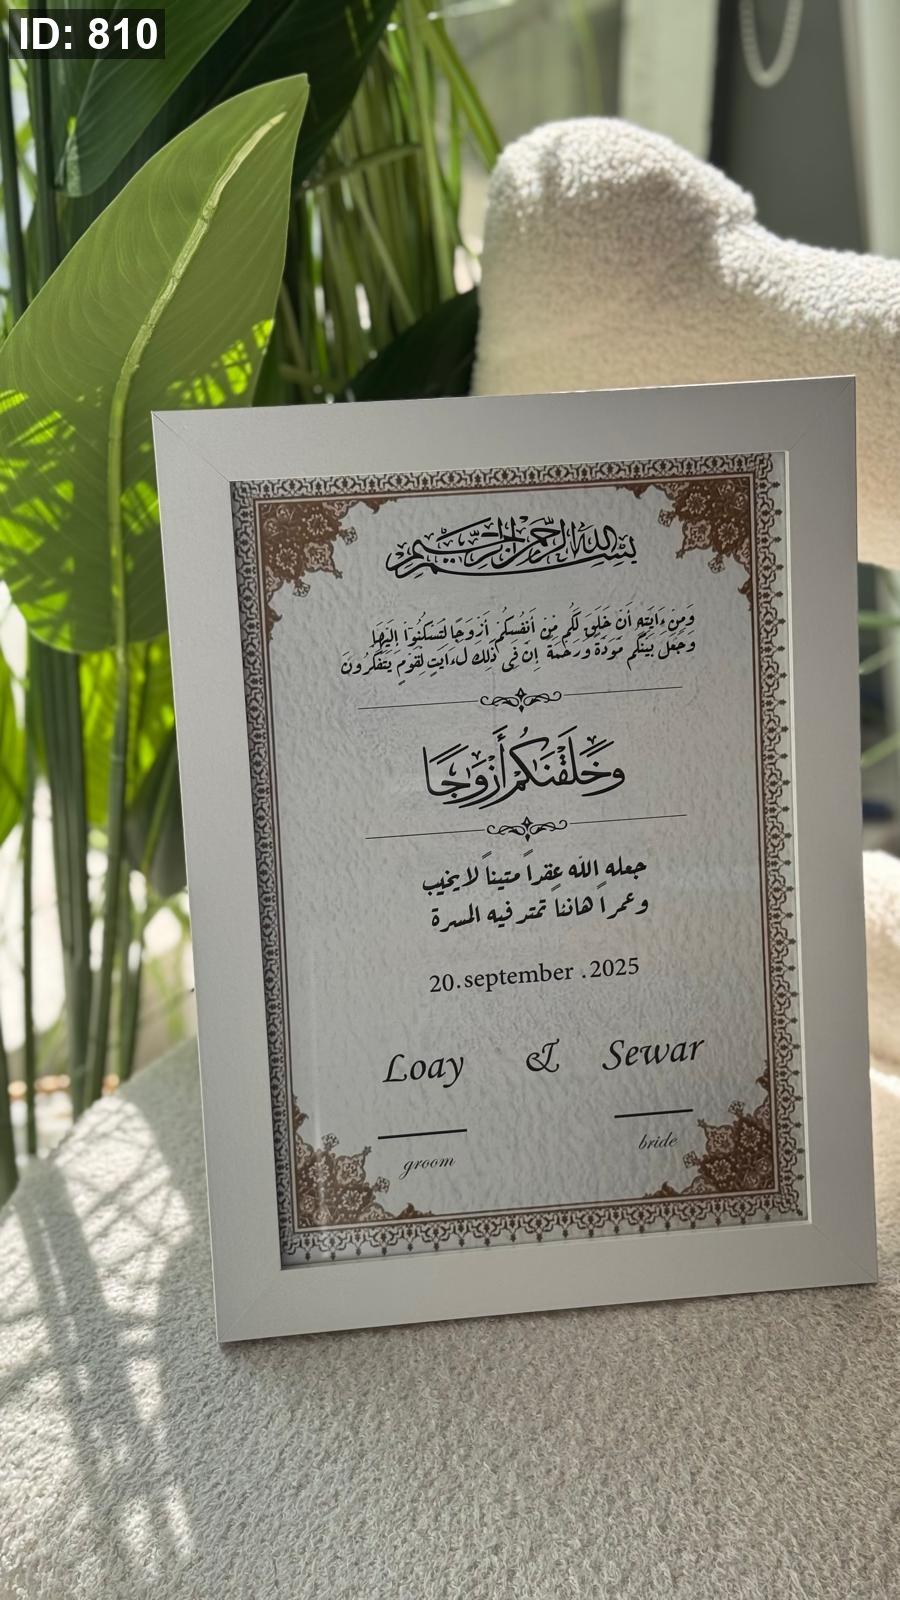 ID: 810
بسم الله الرحمن الرحيم
وَمِنْ ءَايَٰتِهِۦٓ أَنْ خَلَقَ لَكُم مِّنْ أَنفُسِكُمْ أَزْوَٰجًا لِّتَسْكُنُوٓا۟ إِلَيْهَا
وَجَعَلَ بَيْنَكُم مَّوَدَّةً وَرَحْمَةً إِنَّ فِى ذَٰلِكَ لَءَايَٰتٍ لِّقَوْمٍ يَتَفَكَّرُونَ
وَخَلَقْنَٰكُمْ أَزْوَٰجًا
جعله الله عقداً متيناً لا يخيب
وعمراً هانئاً تمتد فيه المسرة
20.september .2025
Loay & Sewar
groom bride